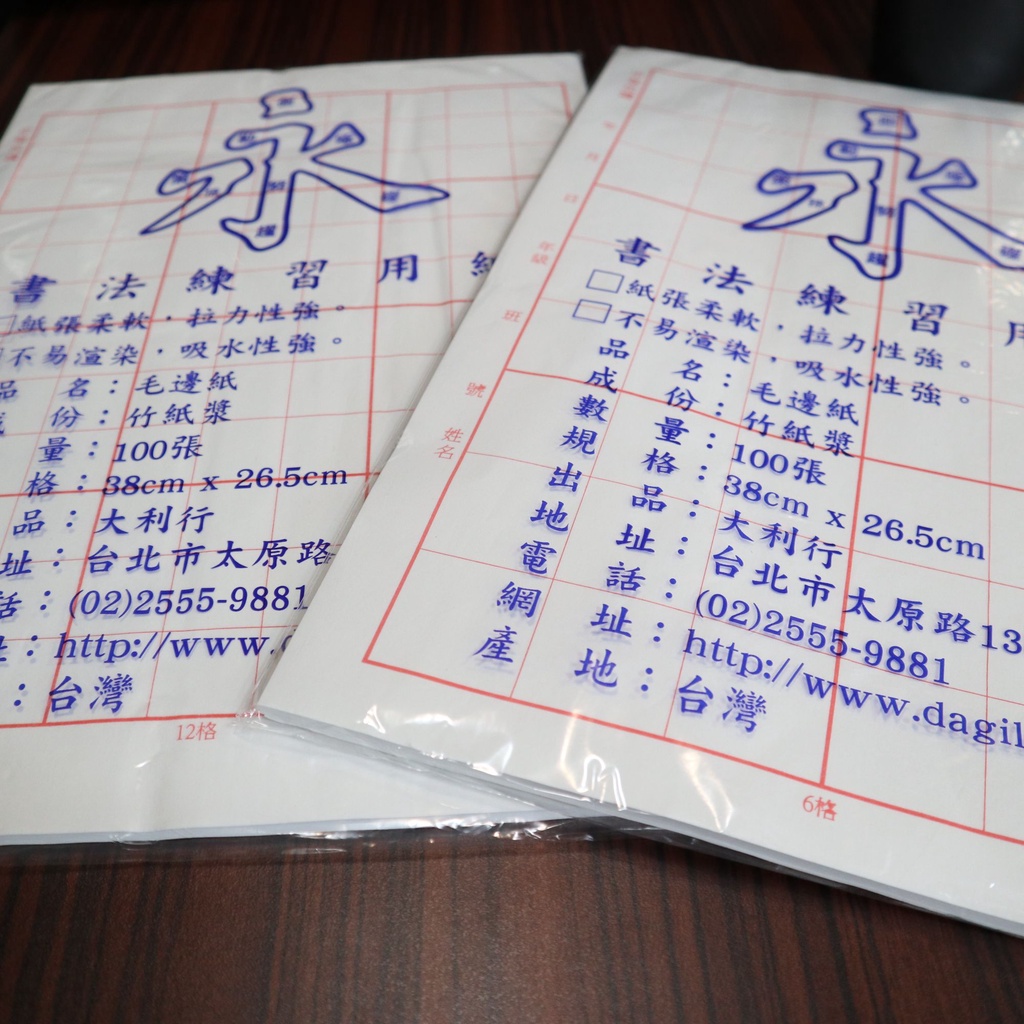 書法練習用
紙張柔軟，拉力性強。
不易渲染，吸水性強。
品 名：毛邊紙
份：竹紙漿
量：100張
格：38cm x 26.5cm
品：大利行
址：台北市太原路
話：(02)2555-9881
址：http://www.
：台灣
12格
年 月 日
年級
班
號
姓名
書法練習用
□紙張柔軟，拉力性強。
□不易渲染，吸水性強。
品 名：毛邊紙
成 份：竹紙漿
數 量：100張
規 格：38cm x 26.5cm
出 品：大利行
地 址：台北市太原路13
電 話：(02)2555-9881
網 址：http://www.dagil
產 地：台灣
6格